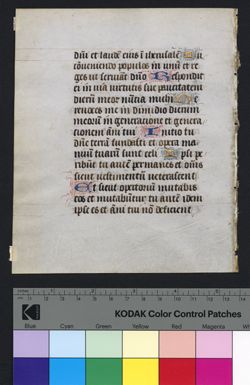 dñi et laudē eius ī iherusalē In
cōueniendo populos in unū et re
ges ut seruiāt dño Respondit
ei in uia uirtutis sue paucitatem
dierū meoꝝ nūcia michi Ne
reuoces me in dimidio dierum
meoꝝ in generatione et genera
tionem āni tui Initio tu
dñe terrā fundasti et opera ma
nuū tuarū sunt celi Ipsi pe
ribūt tu autē permanes et oīns
sicut uestimentū ueterascent
Et sicut opertoriū mutabis
eos et mutabūtur tu autē idem
ipse es et āni tui nō deficient
KODAK Color Control Patches
Blue Cyan Green Yellow Red Magenta
Kodak